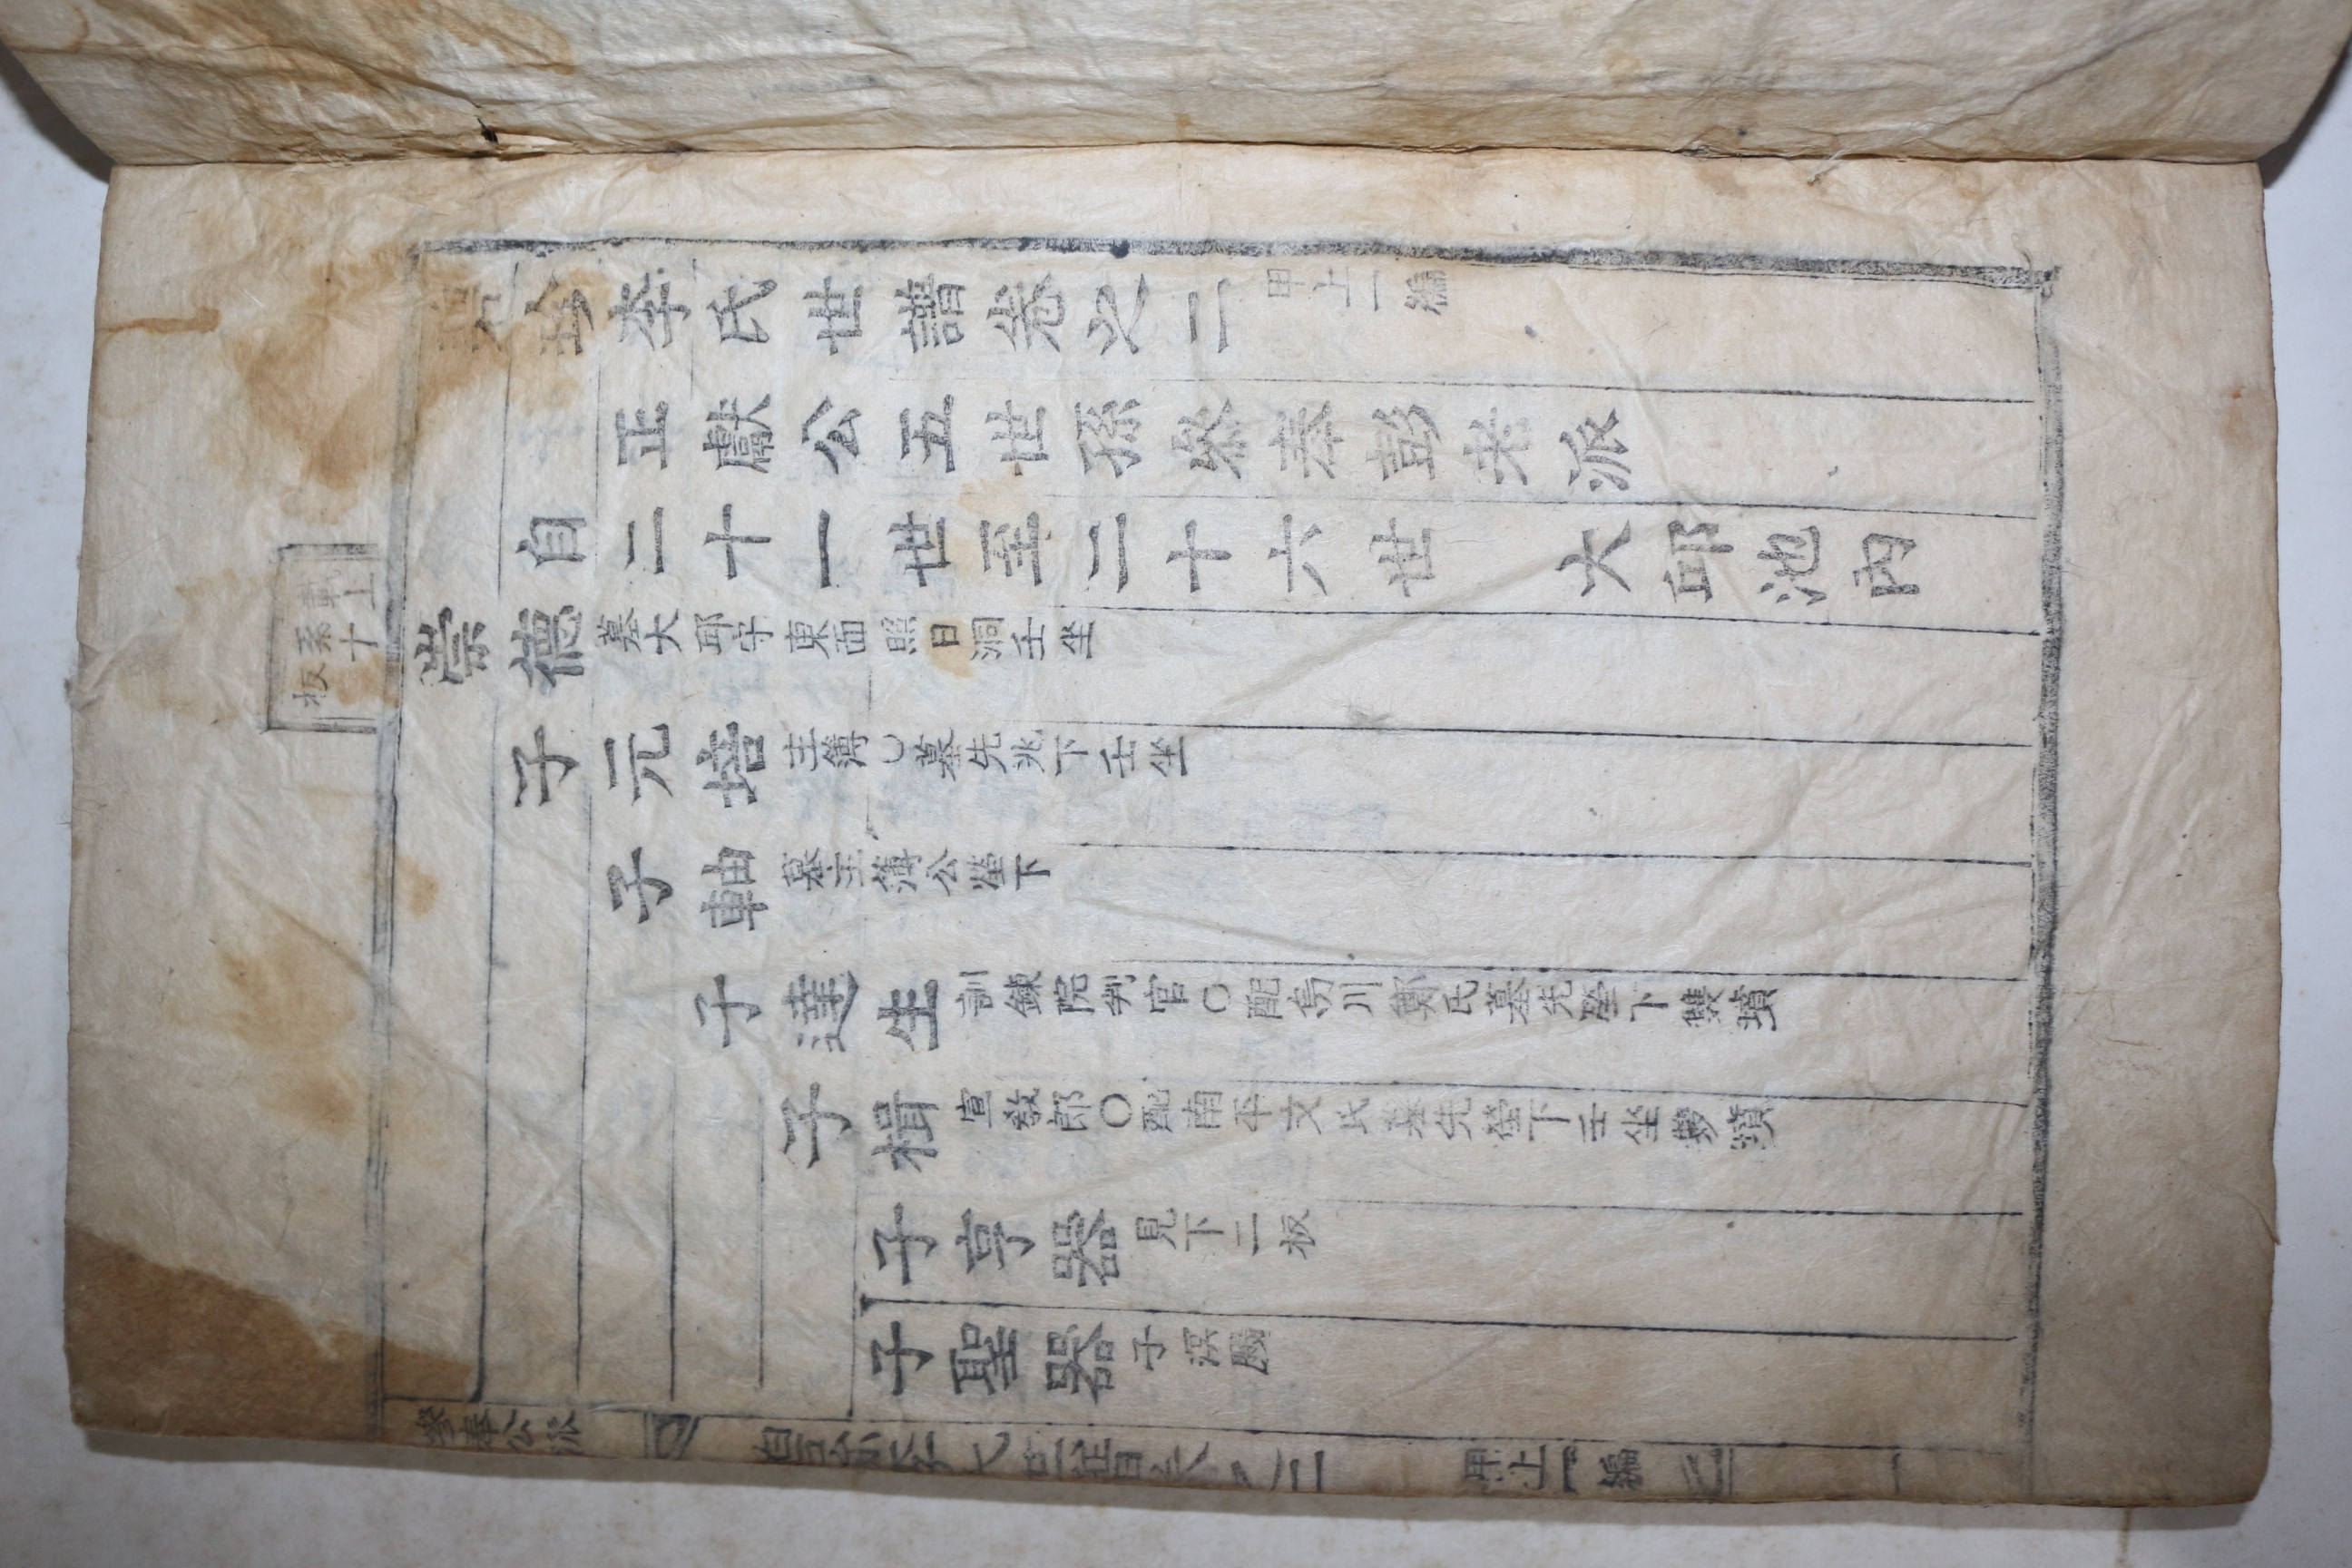 珍李氏世譜卷之二 甲上一編
正獻公五世孫叅奉彭老派
自二十一世至二十六世 大邱池內
載上
系十
板
崇德 墓大邱守東面照日洞壬坐
子元培 主簿○墓先兆下壬坐
子軸 墓主簿公塋下
子達生 訓鍊院判官○配烏川鄭氏墓先塋下雙墳
子楫 宣敎郎○配南平文氏墓先塋下壬坐雙墳
子亨器 見下二板
子聖器 子溟
參奉公派
李氏世譜卷之二 甲上一編